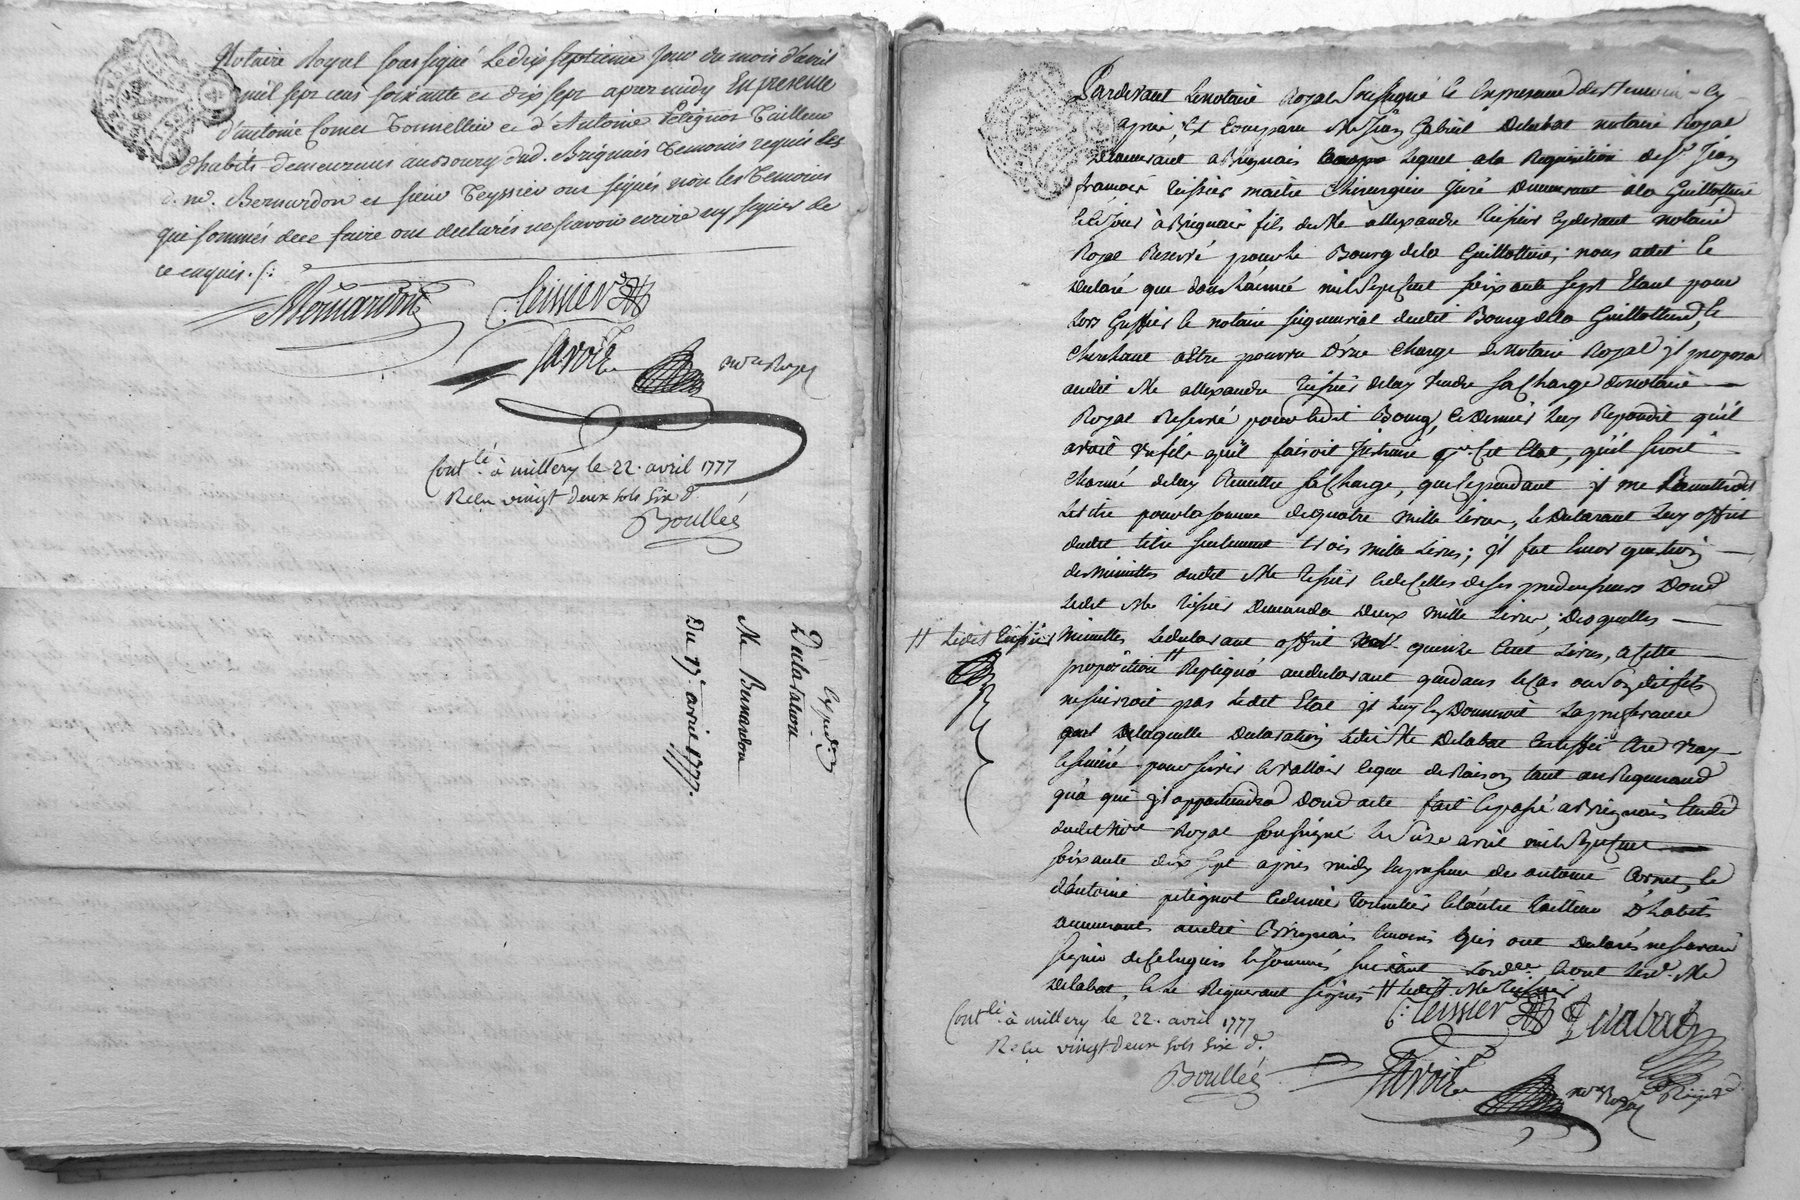 Notaire Royal soussigné Le dix septieme jour du mois d'avril
mil sept cens soixante et dix sept apres midy En presence
d'antoine Cornet Tonnellier et d'Antoine Petignot Tailleur
d'habits demeurants au Bourg dud. Brignais Temoins requis les
d. me. Bernardon et sieur Teyssier ont signés non les Temoins
qui sommés de ce faire ont declarés ne scavoir ecrire ny signer de
ce enquis ./:
Bernardon
C: Teissier
Favoit
nore Royal
Contlé à millery le 22. avril 1777
Reçu vingt deux sols six d.
Boullée
Expedon
Declaration
Me Bernardon
Du 17e avril 1777.
Pardevant Le notaire Royal soussigné & En presence des temoins cy
apres, Est Comparu Me Jean Gabriel Delabat notaire Royal
demeurant a Brignais lequel a la Requisition de Sr Jean
francois teissier maitre chirurgien juré demeurant à la Guillottiere
de Me allexandre teissier cy devant notaire
Royal Reservé pour le Bourg de la Guillottiere; nous a dit &
declaré que dans l'année mil sept cent soixante sept Etant pour
lors Greffier & notaire seigneurial dudit Bourg de la Guillottiere, &
cherchant a Etre pourvu d'une charge de Notaire Royal jl proposa
audit Me allexandre teissier de luy vendre sa charge de notaire
Royal Reservé pour ledit Bourg, ce dernier luy Repondit qu'il
avoit un fils qu'il faisoit jnstruire pr. cet Etat, qu'il seroit
charmé de luy Remettre sa charge, que cependant jl me Remettroit
le titre pour la somme de quatre mille livres, le declarant luy offrit
dudit titre seulement trois mille livres; jl fut Encor question
des minuttes dudit Me teissier & de celles de ses predecesseurs dont
ledit Me teissier demanda deux mille livres, desquelles
minuttes le declarant offrit quinze cent livres, a cette
# Ledit teissier
proposition # Repliqua au declarant que dans le cas ou son dit fils
ne suivroit pas ledit Etat jl luy En donneroit la preference
de laquelle declaration ledit Me Delabat Certiffie Etre vray
& sincere pour servir & valloir ce que de Raison tant au Requerant
qu'a qui jl appartiendra dont acte fait & passé a Brignais Etude
dudit Nore Royal soussigné le seize avril mil sept cent
soixante dix sept apres midy En presence de antoine Cornet, &
d'antoine petignot le dernier tonnelier & l'autre tailleur d'habits
demeurants audit Brignais temoins qui ont declarés ne scavoir
signer de ce Enquis & sommés suivant l'ordce & ont led. Me
Delabat, & le Requerant signés # ledit Me teissier
C: Teissier
Delabat
Contlé à millery le 22. avril 1777
Reçu vingt deux sols six d.
Boullée
Favoit
nore Royal